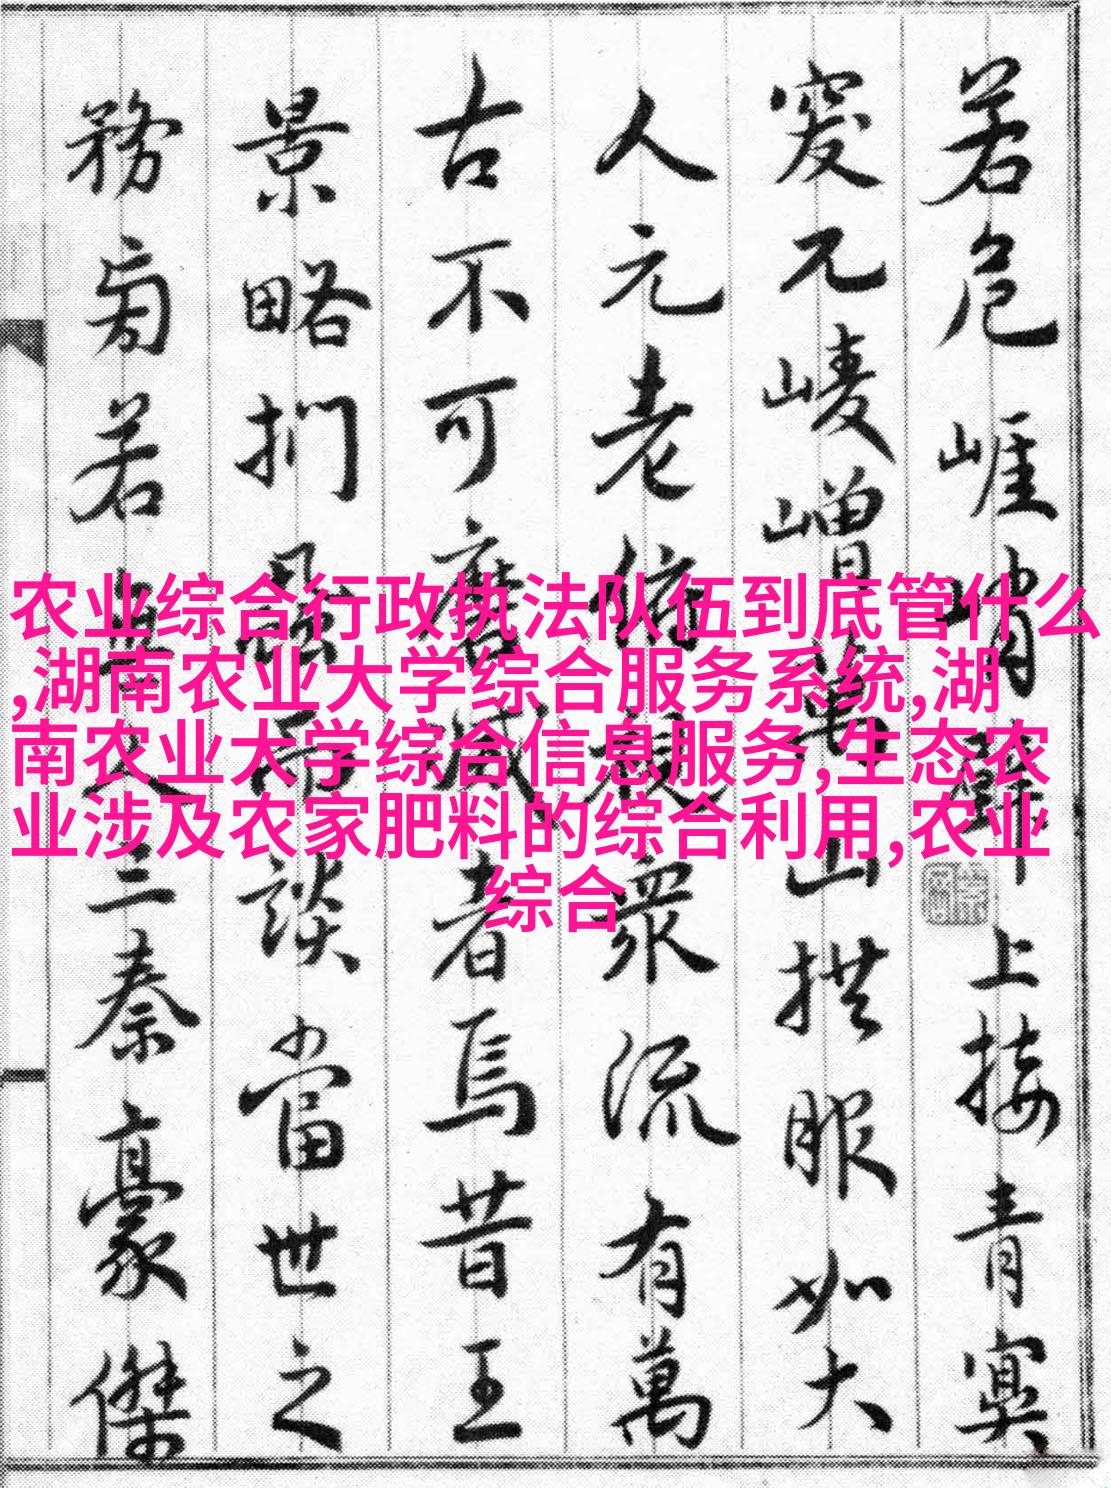 农业综合行政执法队伍到底管什么
,湖南农业大学综合服务系统,湖
南农业大学综合信息服务,生态农
业涉及农家肥料的综合利用,农业
综合
若危崕峭壁上接青冥
突兀崚嶒萬山拱服如大
人元老俯視衆流有萬
古不可磨滅者焉昔王
景略捫蝨而談當世之
務旁若無人三秦豪傑